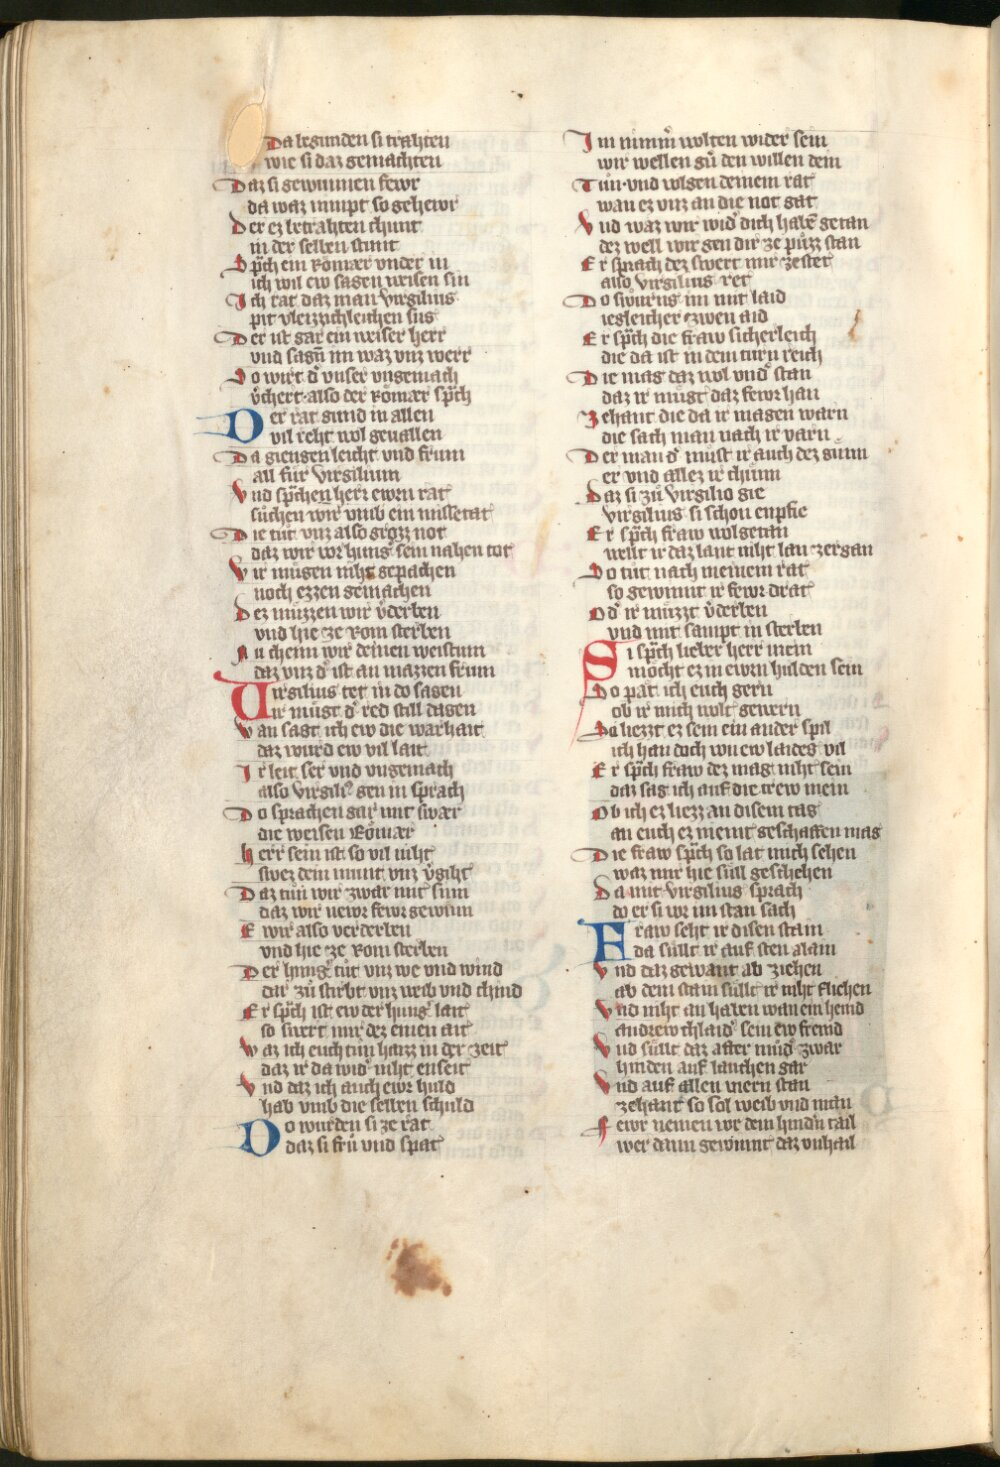 Da begunden si trahten
wie si daz gemachten
Daz si gewunnen fewr
da waz nimpt so gehewr
Der ez betrahten chunt
in der selben stunt
Do sp̄ch ein Römær vnder in
ich wil ew sagen meisen sin
Ich rat daz man virgilius
pit vleizzichleichen sus
Der ist gar ein weiser herr
vnd sagn̄ im waz vnz werr
So wirt d᷑ vnser vngemach
v᷑chert· also der Römær sp̄ch
Der rat gund in allen
vil reht wol geuallen
Da giengen leicht vnd frum
all für virgilium
Vnd sp̄chen herr ewrn rat
suͤchen wir vmb ein missetat
Die tuͦt vnz also grozz not
daz wir vor hung᷑ sein nahen tot
Wir mugen niht gepachen
noch ezzen gemachen
Dez muͤzzen wir v᷑derben
vnd hie ze Rom sterben
Nu chenn wir deinen weistum
daz vnz d᷑ ist an mazzen frum
Virgilius tet in do sagen
Ir muͤgt d᷑ red still dagen
Wan sagt ich ew die warhait
daz wurd ew vil lait
Ir leit ser vnd vngemach
also virgili᷒ gen in sprach
Do sprachen gar mit swær
die weisen Römær
herr sein ist so vil niht
swez dein munt vnz v᷑giht
Daz tuͦn wir zwar mit sinn
daz wir newr fewr gewinn
E wir also verderben
vnd hie ze Rom sterben
Der hung᷑ tuͦt vnz we vnd wind
dar zuͦ stirbt vnz weib vnd chind
Er sp̄ch ist ew der hung᷑ lait
so swert mir dez einen ait
Waz ich euch tuͦn harzz in der zeit
daz ir da wid᷑ niht enseit
Vnd daz ich auch ewr huld
hab vmb die selben schuld
Do wurden si ze rat
daz si fruͤ vnd spat
Im nimm᷑ wolten wider sein
wir wellen guͦ den willen dein
Tuͦn· vnd volgen deinem rat
wan ez vnz an die not gat
Vnd waz wir wid᷑ dich habē getan
dez well wir gen dir ze puͤzz stan
Er sprach dez swert mir ze stet
also virgilius ret
Do swuͦrns im mit laid
iegleicher zwen aid
Er sp̄ch die fraw sicherleich
die da ist in dem turn reich
Die mag daz wol vnd᷑ stan
daz ir muͤgt daz fewr han
Zehant die da ir magen warn
die sach man nach ir varn
Der man d᷑ muͤst ir auch dez guͤnn
er vnd allez ir chuͤnn
Daz si zuͦ virgilio gie
virgilius si schon enpfie
Er sp̄ch fraw wolgetan
wellt ir daz lant niht lan zergan
So tuͦt nach meinem rat
so gewinnt ir fewr drat
Od᷑ ir muͤzzt v᷑derben
vnd mit sampt in sterben
Si sp̄ch lieber herr mein
moͤcht ez in ewrn hulden sein
So pæt ich euch gern
ob ir mich wolt gewern
Da liezzt ez sein ein ander spil
ich han doch von ew laides vil
Er sp̄ch fraw dez mag niht sein
daz sag ich auf die trew mein
Ob ich ez liezz an disem tag
an euch ez niemt geschaffen mag
Die fraw sp̄ch so lat mich sehen
waz mir hie süll geschehen
Da mit virgilius sprach
do er si vor im stan sach
Fraw seht ir disen stain
da süllt ir auf sten alain
Vnd daz gewant ab ziehen
ab dem stain süllt ir niht fliehen
Vnd niht an haben wan ein hemd
andrew chlaid᷑ sein ew fremd
Vnd süllt daz after muͦd᷑ zwar
hinden auf lauchen gar
Vnd auf allen viern stan
zehant so sol weib vnd man
Fewr nemen vor dem hindn̄ tail
wer dann gewinnt daz vnhail